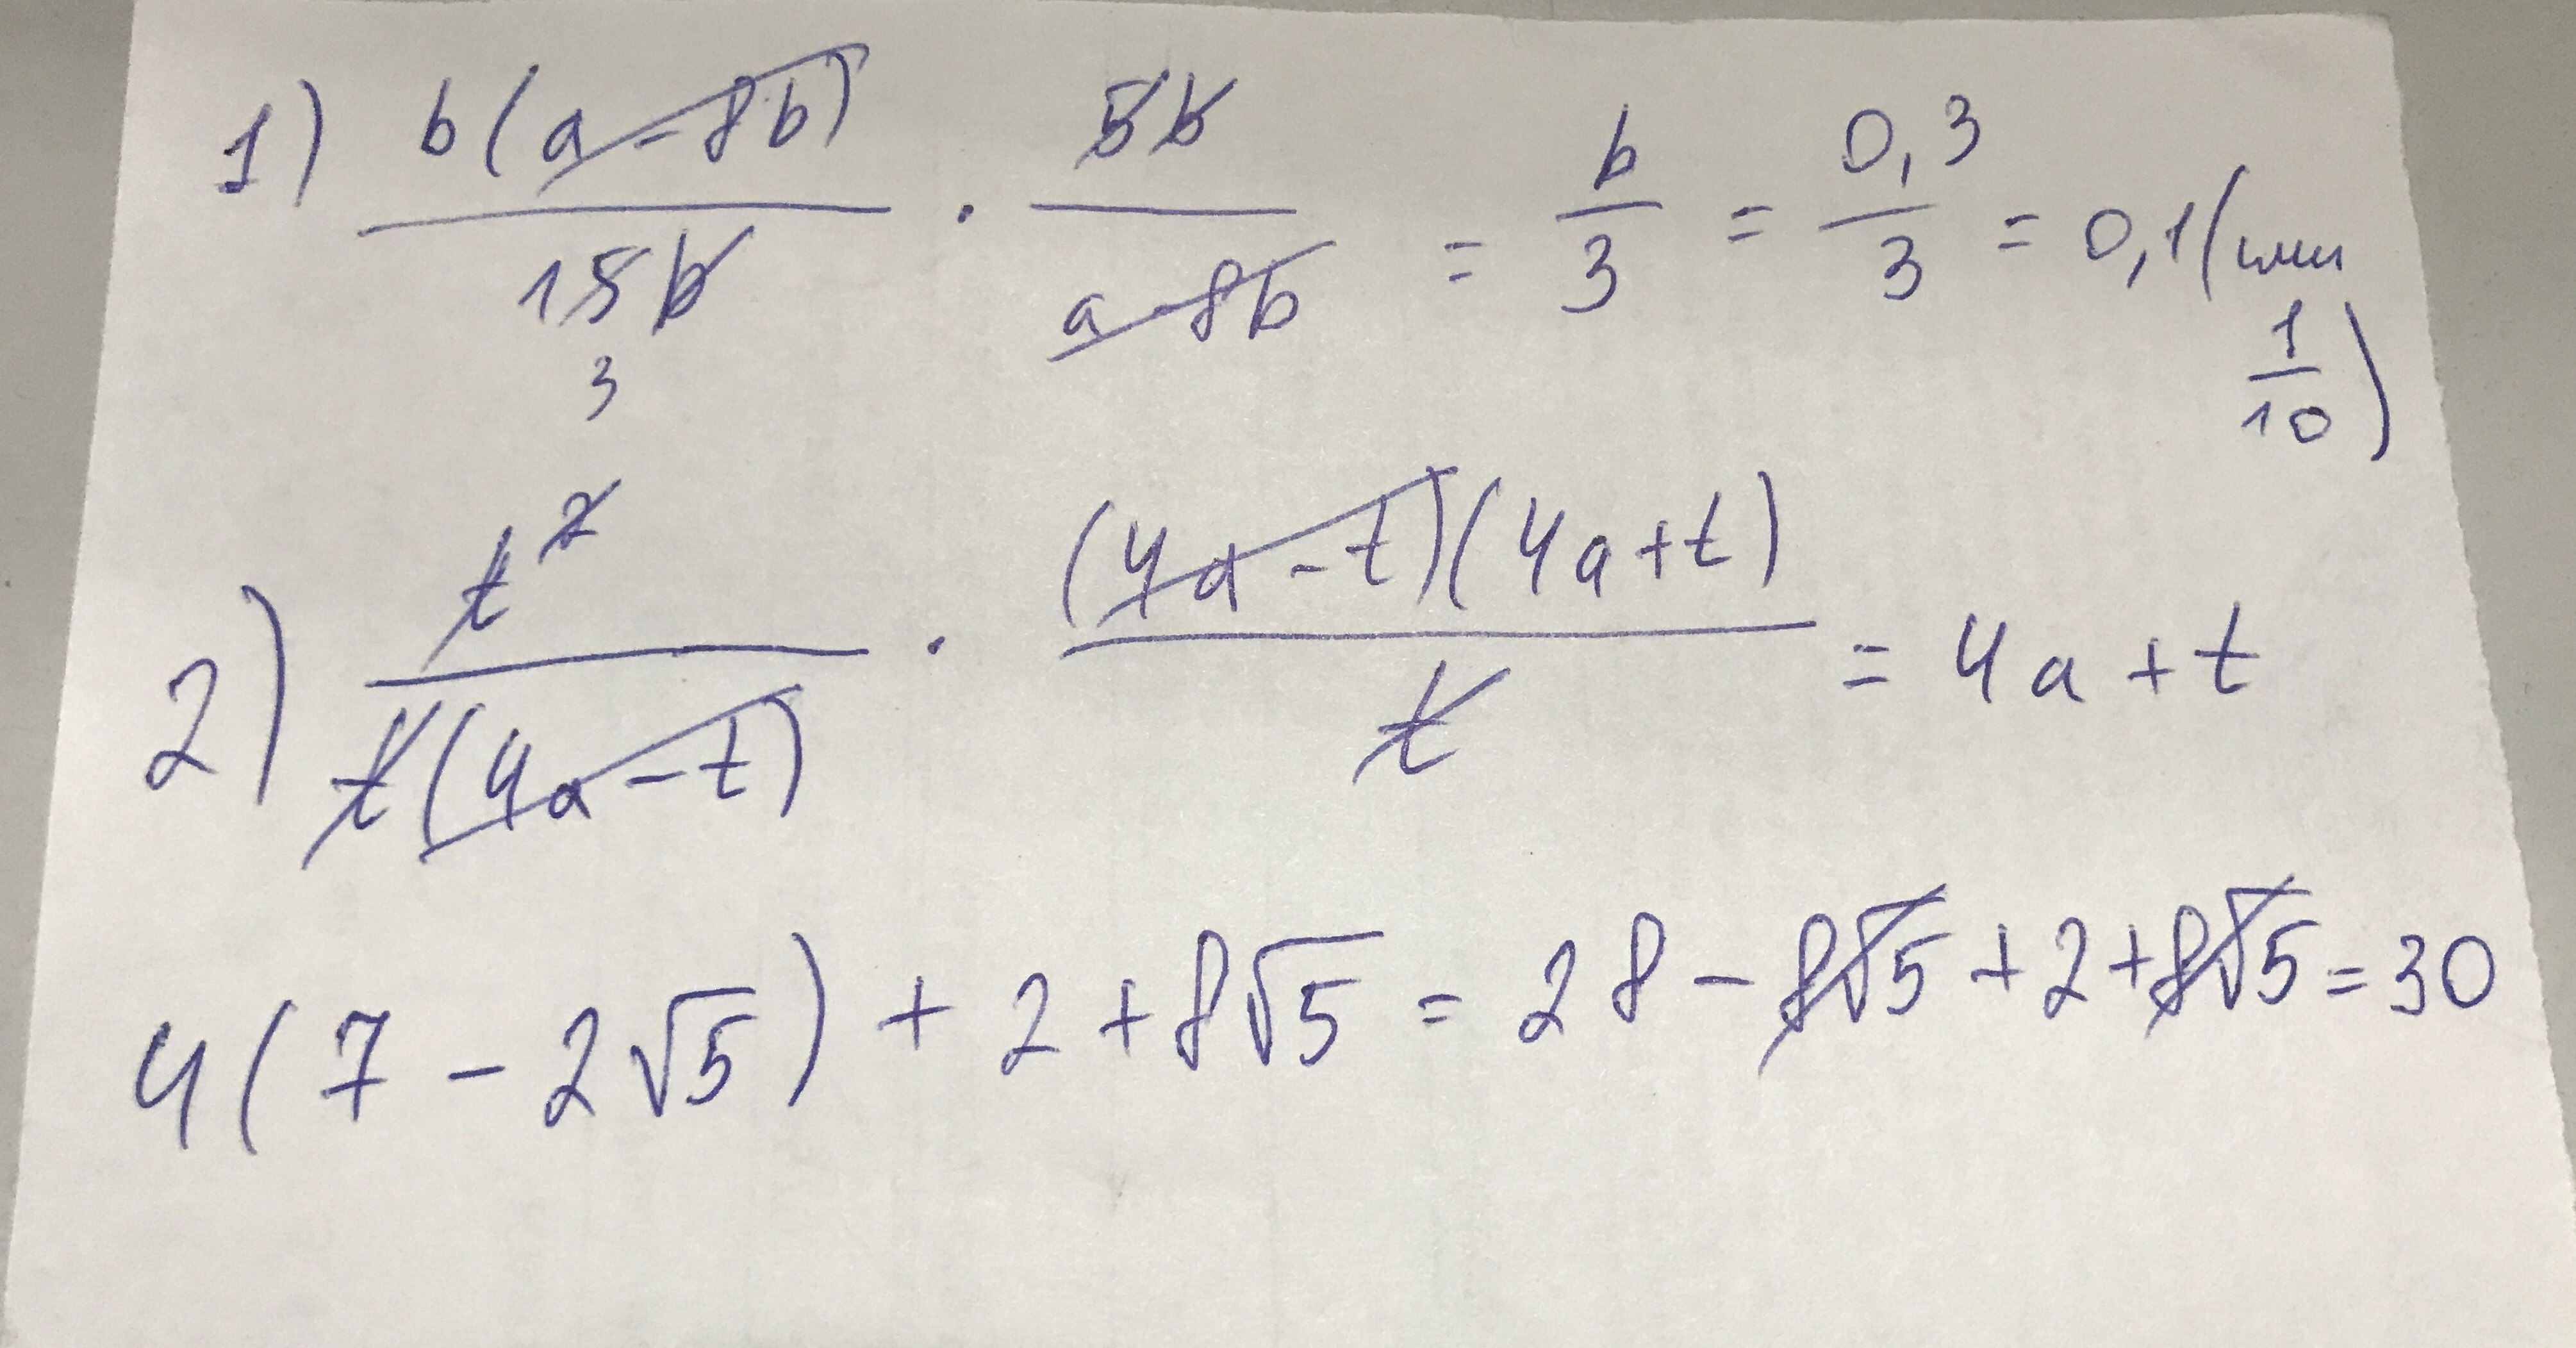 1) b(a-8b)/15b · 5b/(a-8b) = b/3 = 0,3/3 = 0,1 (или 1/10)
3
2) t²/(t(4a-t)) · (4a-t)(4a+t)/t = 4a+t
4(7-2√5)+2+8√5 = 28-8√5+2+8√5=30